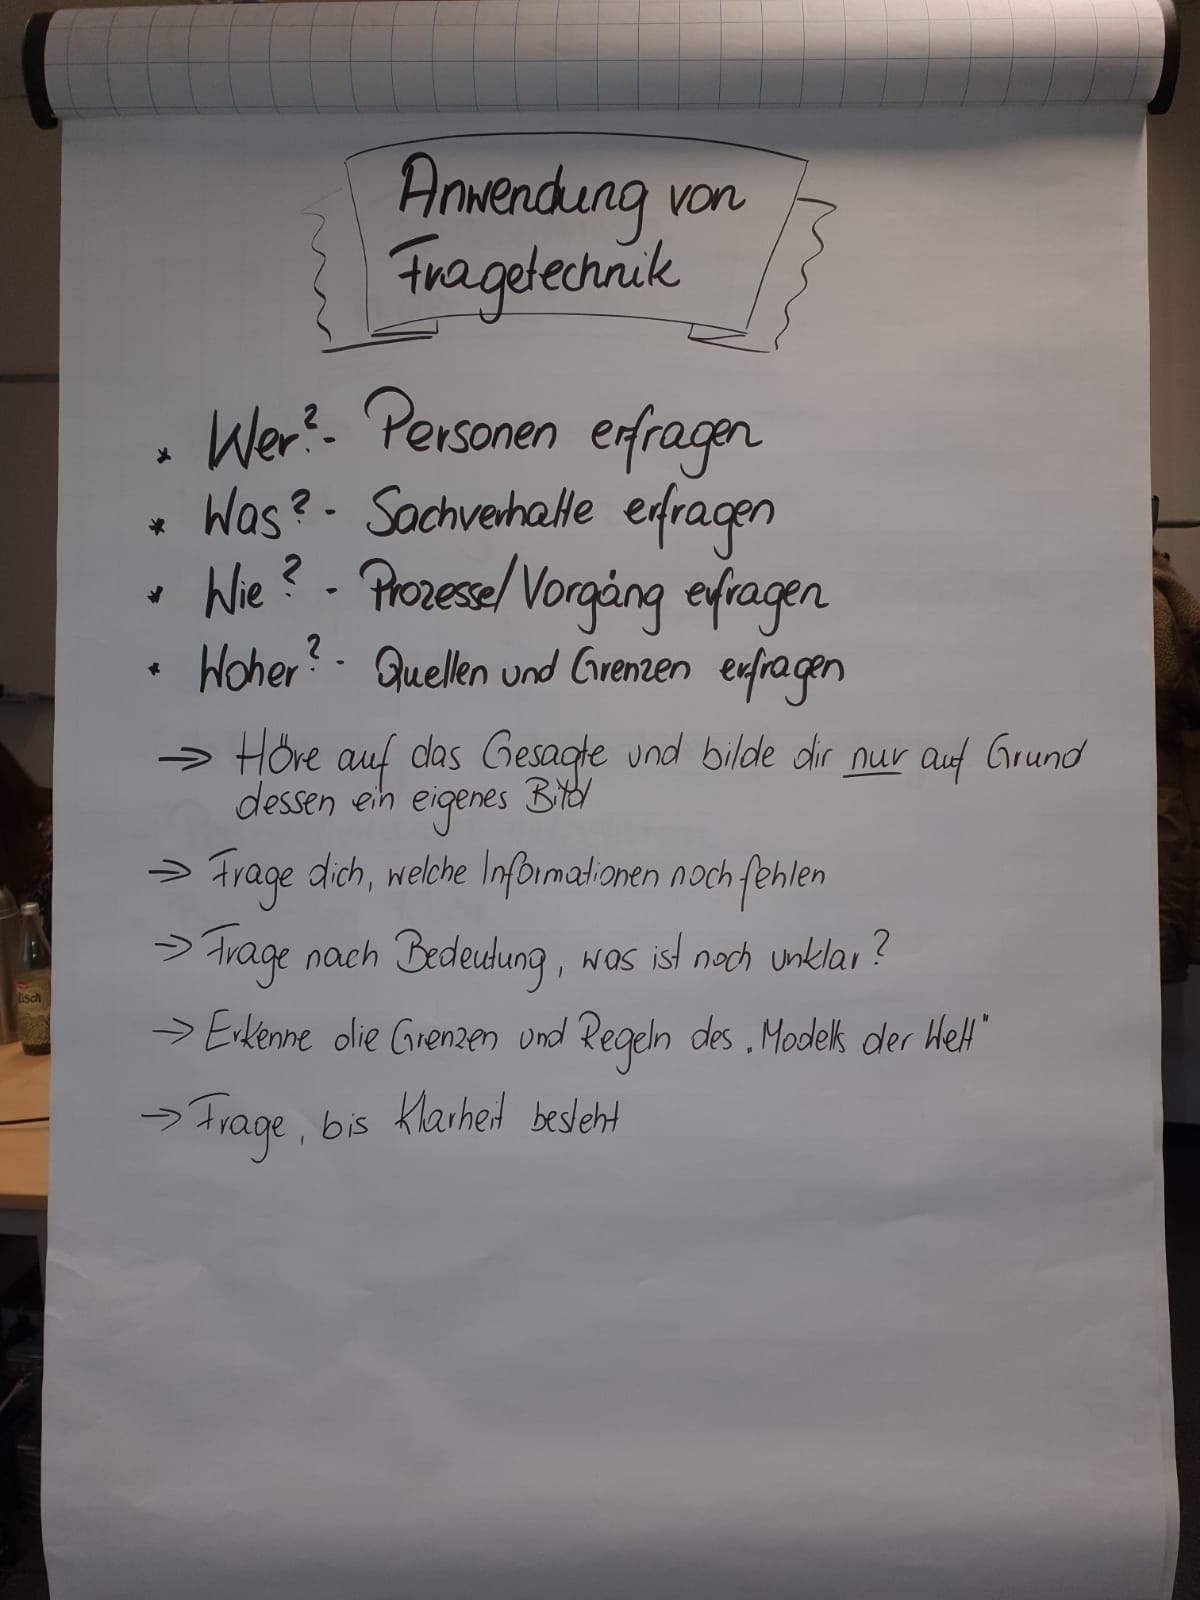 Anwendung von
Fragetechnik
* Wer? - Personen erfragen
* Was? - Sachverhalte erfragen
* Wie? - Prozesse/Vorgäng erfragen
* Woher? - Quellen und Grenzen erfragen
→ Höre auf das Gesagte und bilde dir nur auf Grund
dessen ein eigenes Bild
→ Frage dich, welche Informationen noch fehlen
→ Frage nach Bedeutung, was ist noch unklar?
→ Erkenne die Grenzen und Regeln des „Modells der Welt"
→ Frage, bis Klarheit besteht